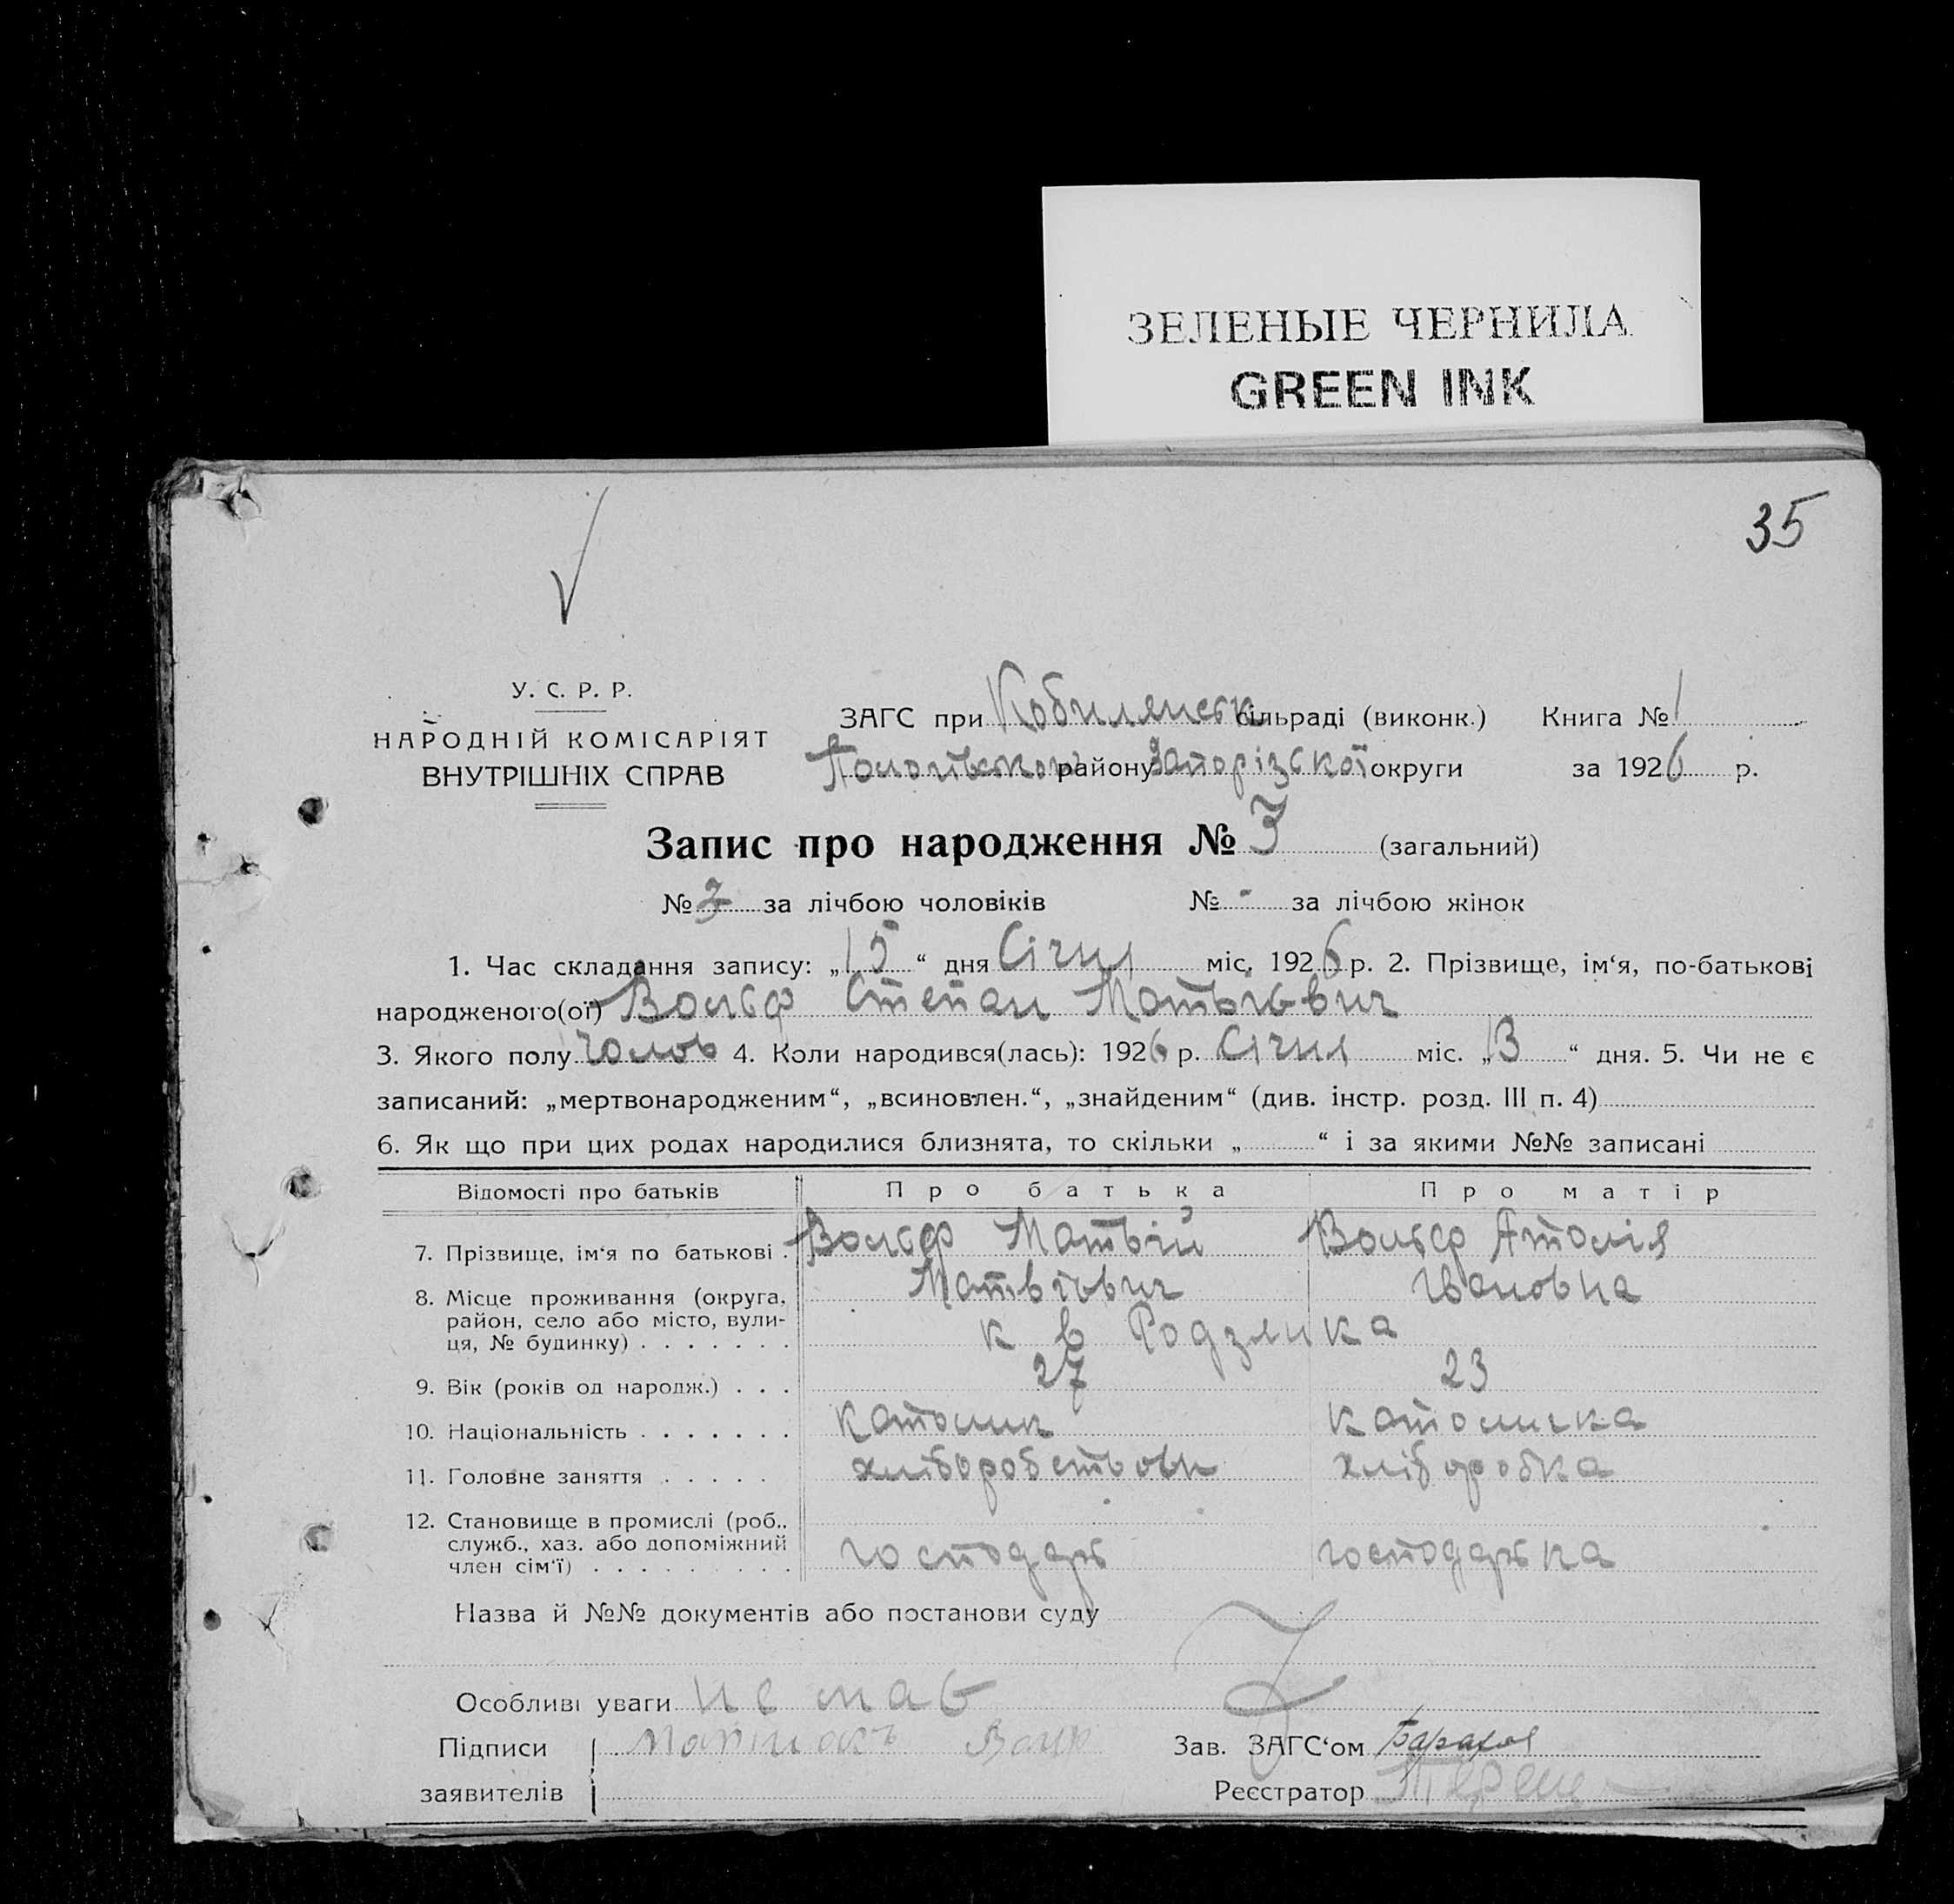 ЗЕЛЕНЫЕ ЧЕРНИЛА
GREEN INK
35
У. С. Р. Р.
НАРОДНІЙ КОМІСАРІЯТ
ВНУТРІШНІХ СПРАВ
ЗАГС при Кобилянськ сільраді (виконк.) Книга № 1
району Запорізської округи за 1926 р.
Запис про народження № 3 (загальний)
№ 3 за лічбою чоловіків № - за лічбою жінок
1. Час складання запису: „15“ дня Січня міс. 1926 р. 2. Прізвище, ім‘я, по-батькові
народженого(ої) Вольф Степан Матьвієвич
3. Якого полу чолов 4. Коли народився(лась): 1926 р. Січня міс. „13“ дня. 5. Чи не є
записаний: „мертвонародженим“, „всиновлен.“, „знайденим“ (див. інстр. розд. III п. 4)
6. Як що при цих родах народилися близнята, то скільки „ “ і за якими №№ записані
Відомості про батьків Про батька Про матір
7. Прізвище, ім‘я по батькові . Вольф Матьвій Вольф Атолія
Матвієвич Івановна
8. Місце проживання (округа,
район, село або місто, вули-
ця, № будинку) . . . . . . . к в Родзянка
9. Вік (років од народж.) . . . 27 23
10. Національність . . . . . . . католик католичка
11. Головне заняття . . . . . хліборобством хліборобка
12. Становище в промислі (роб.,
служб., хаз. або допоміжний
член сім‘ї) . . . . . . . . . господарь господарька
Назва й №№ документів або постанови суду
Особливі уваги не має
Підписи
Зав. ЗАГС‘ом
заявителів
Реєстратор